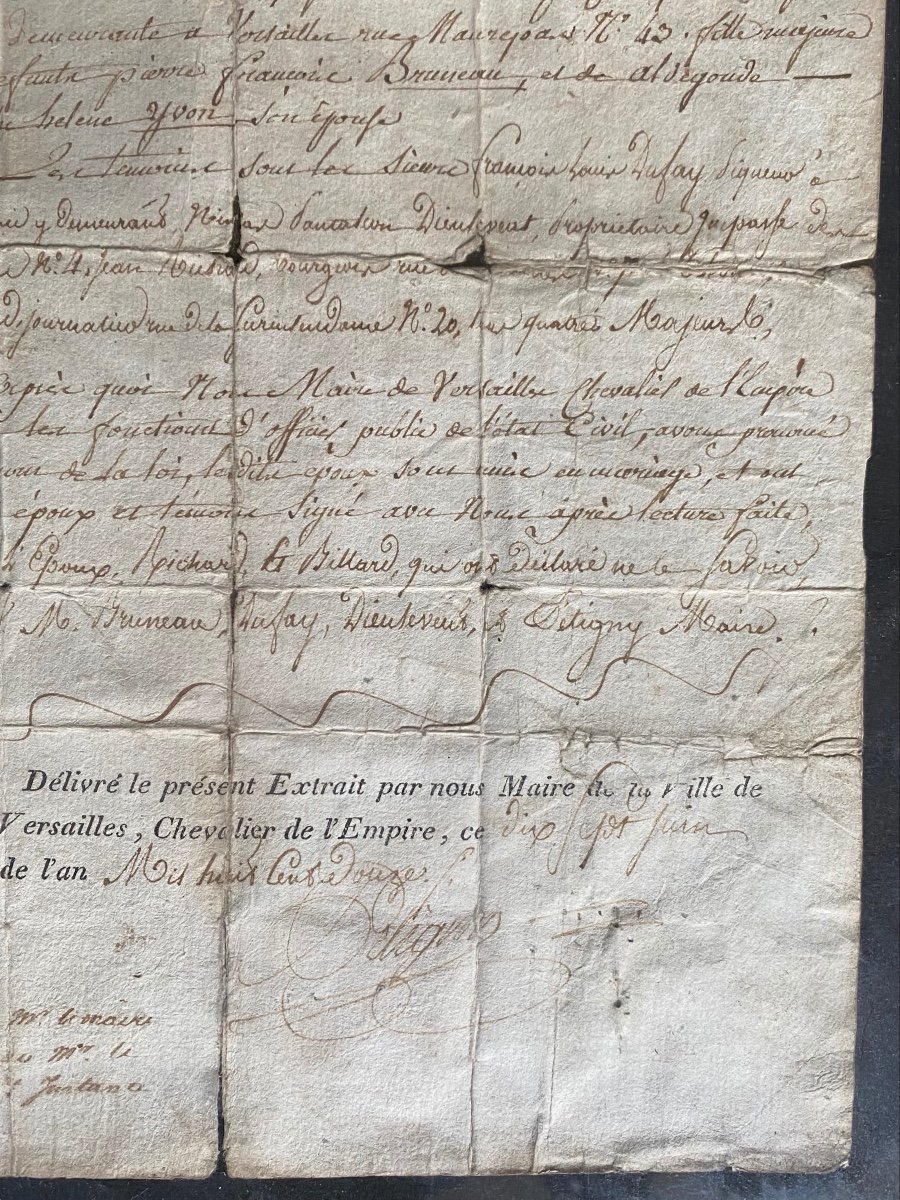 Demeurante a Versailles rue Maurepas N.° 43. fille majeure
pierre francois Bruneau, et de alvegonde —
helene yvon son épouse
Les temoins sont les sieurs françois Louis Dufay Piqueur à
y demeurant, Nicolas Pantaléon Dieutevent, Propriétaire Impasse des
N.° 4, Jean bourgeois rue
journalier rue de la Surintendance N.° 20, tous quatres Majeurs,
après quoi Nous Maire de Versailles Chevalier de l'Empire
les fonctions d'officier public de l'état Civil, avons prononcé
nom de la loi, lesdits époux sont unis en mariage, et ont
époux et témoins signé avec Nous après lecture faite,
Epoux, Richard, & Billard, qui ont déclaré ne le savoir,
M. Bruneau, Dufay, Dieutevent, & Pétigny Maire.
Délivré le présent Extrait par nous Maire de la Ville de
Versailles, Chevalier de l'Empire, ce dix sept juin
de l'an Mil huit Cent Douze.
Petigny
Mr. le maire
Mr. le